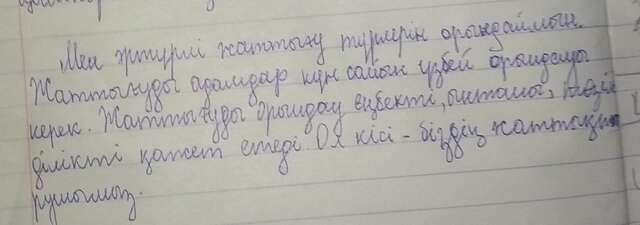 Мен әртүрлі жаттығу түрлерін орындаймын.
Жаттығуды адамдар күн сайын үзбей орындауы
керек. Жаттығуды орындау еңбекті, ынталы,
ділікті қажет етеді. Ол кісі - біздің жаттықты
рушымыз.